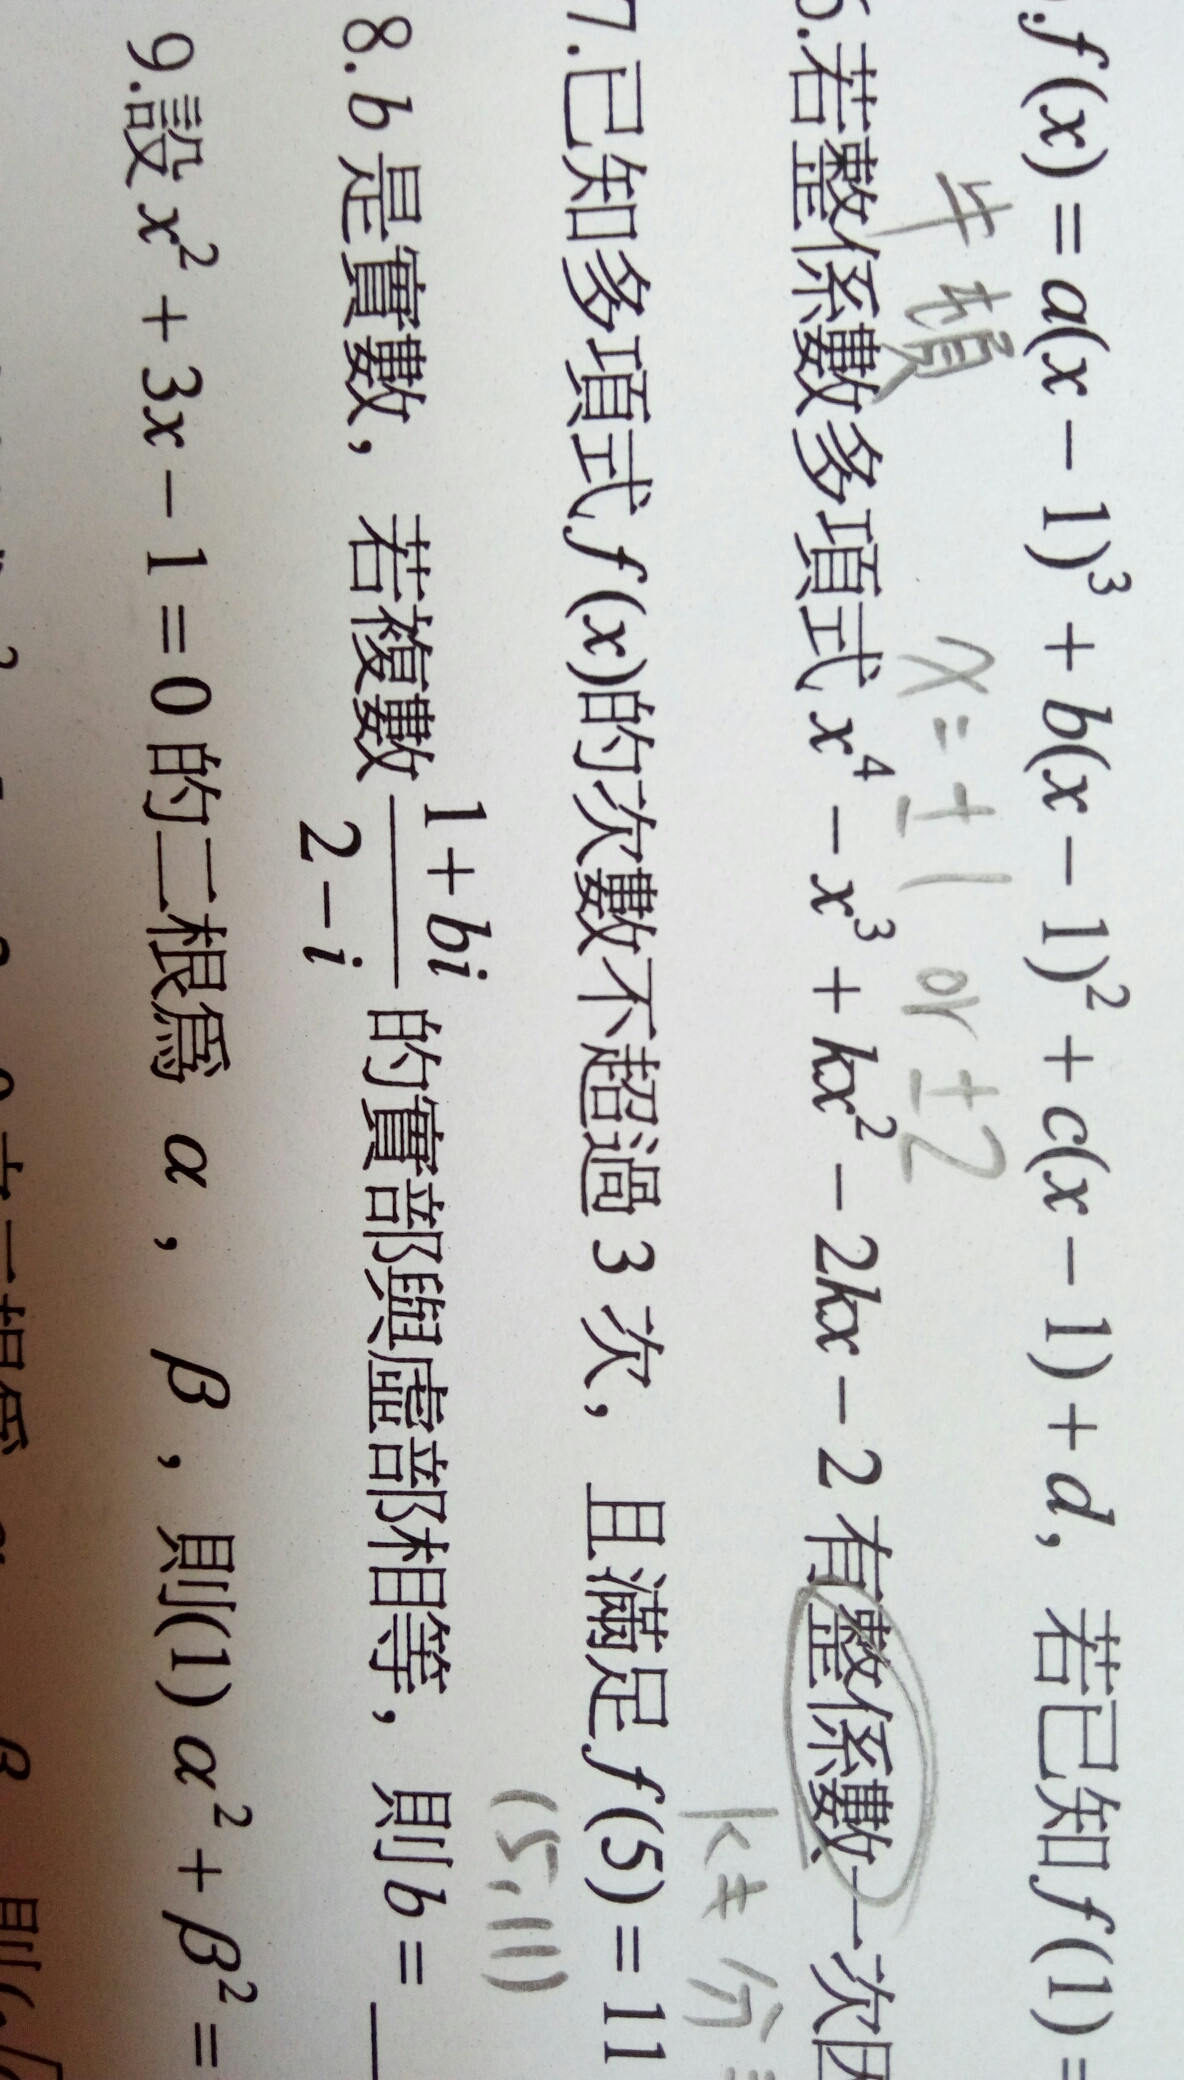 .f(x) = a(x − 1)³ + b(x − 1)² + c(x − 1) + d, 若已知 f(1) =
牛頓 x = ±1 or ±2
6.若整係數多項式 x⁴ − x³ + kx² − 2kx − 2 有整係數一次因
k≠分
7.已知多項式 f(x)的次數不超過 3 次, 且滿足 f(5) = 11
(5,11)
8.b 是實數, 若複數 (1 + bi)/(2 − i) 的實部與虛部相等, 則 b = __
9.設 x² + 3x − 1 = 0 的二根為 α, β, 則(1) α² + β² =